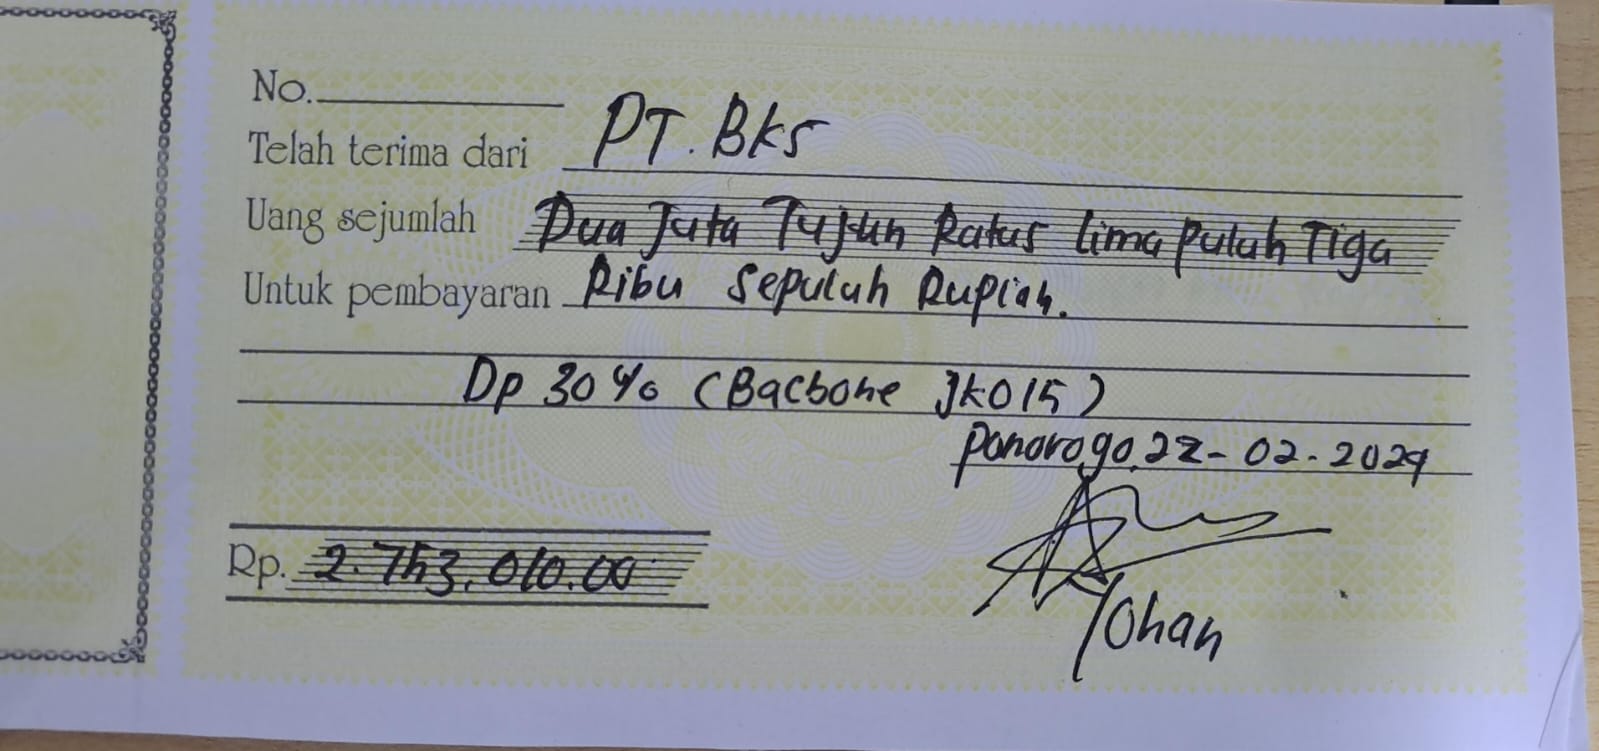 No.
Telah terima dari PT. BKS
Uang sejumlah Dua Juta Tujuh Ratus Lima Puluh Tiga
Untuk pembayaran Ribu Sepuluh Rupiah.
Dp 30% (Bacbone JKO15)
Ponorogo, 22-02-2024
Rp. 2.753.010.00
Yohan